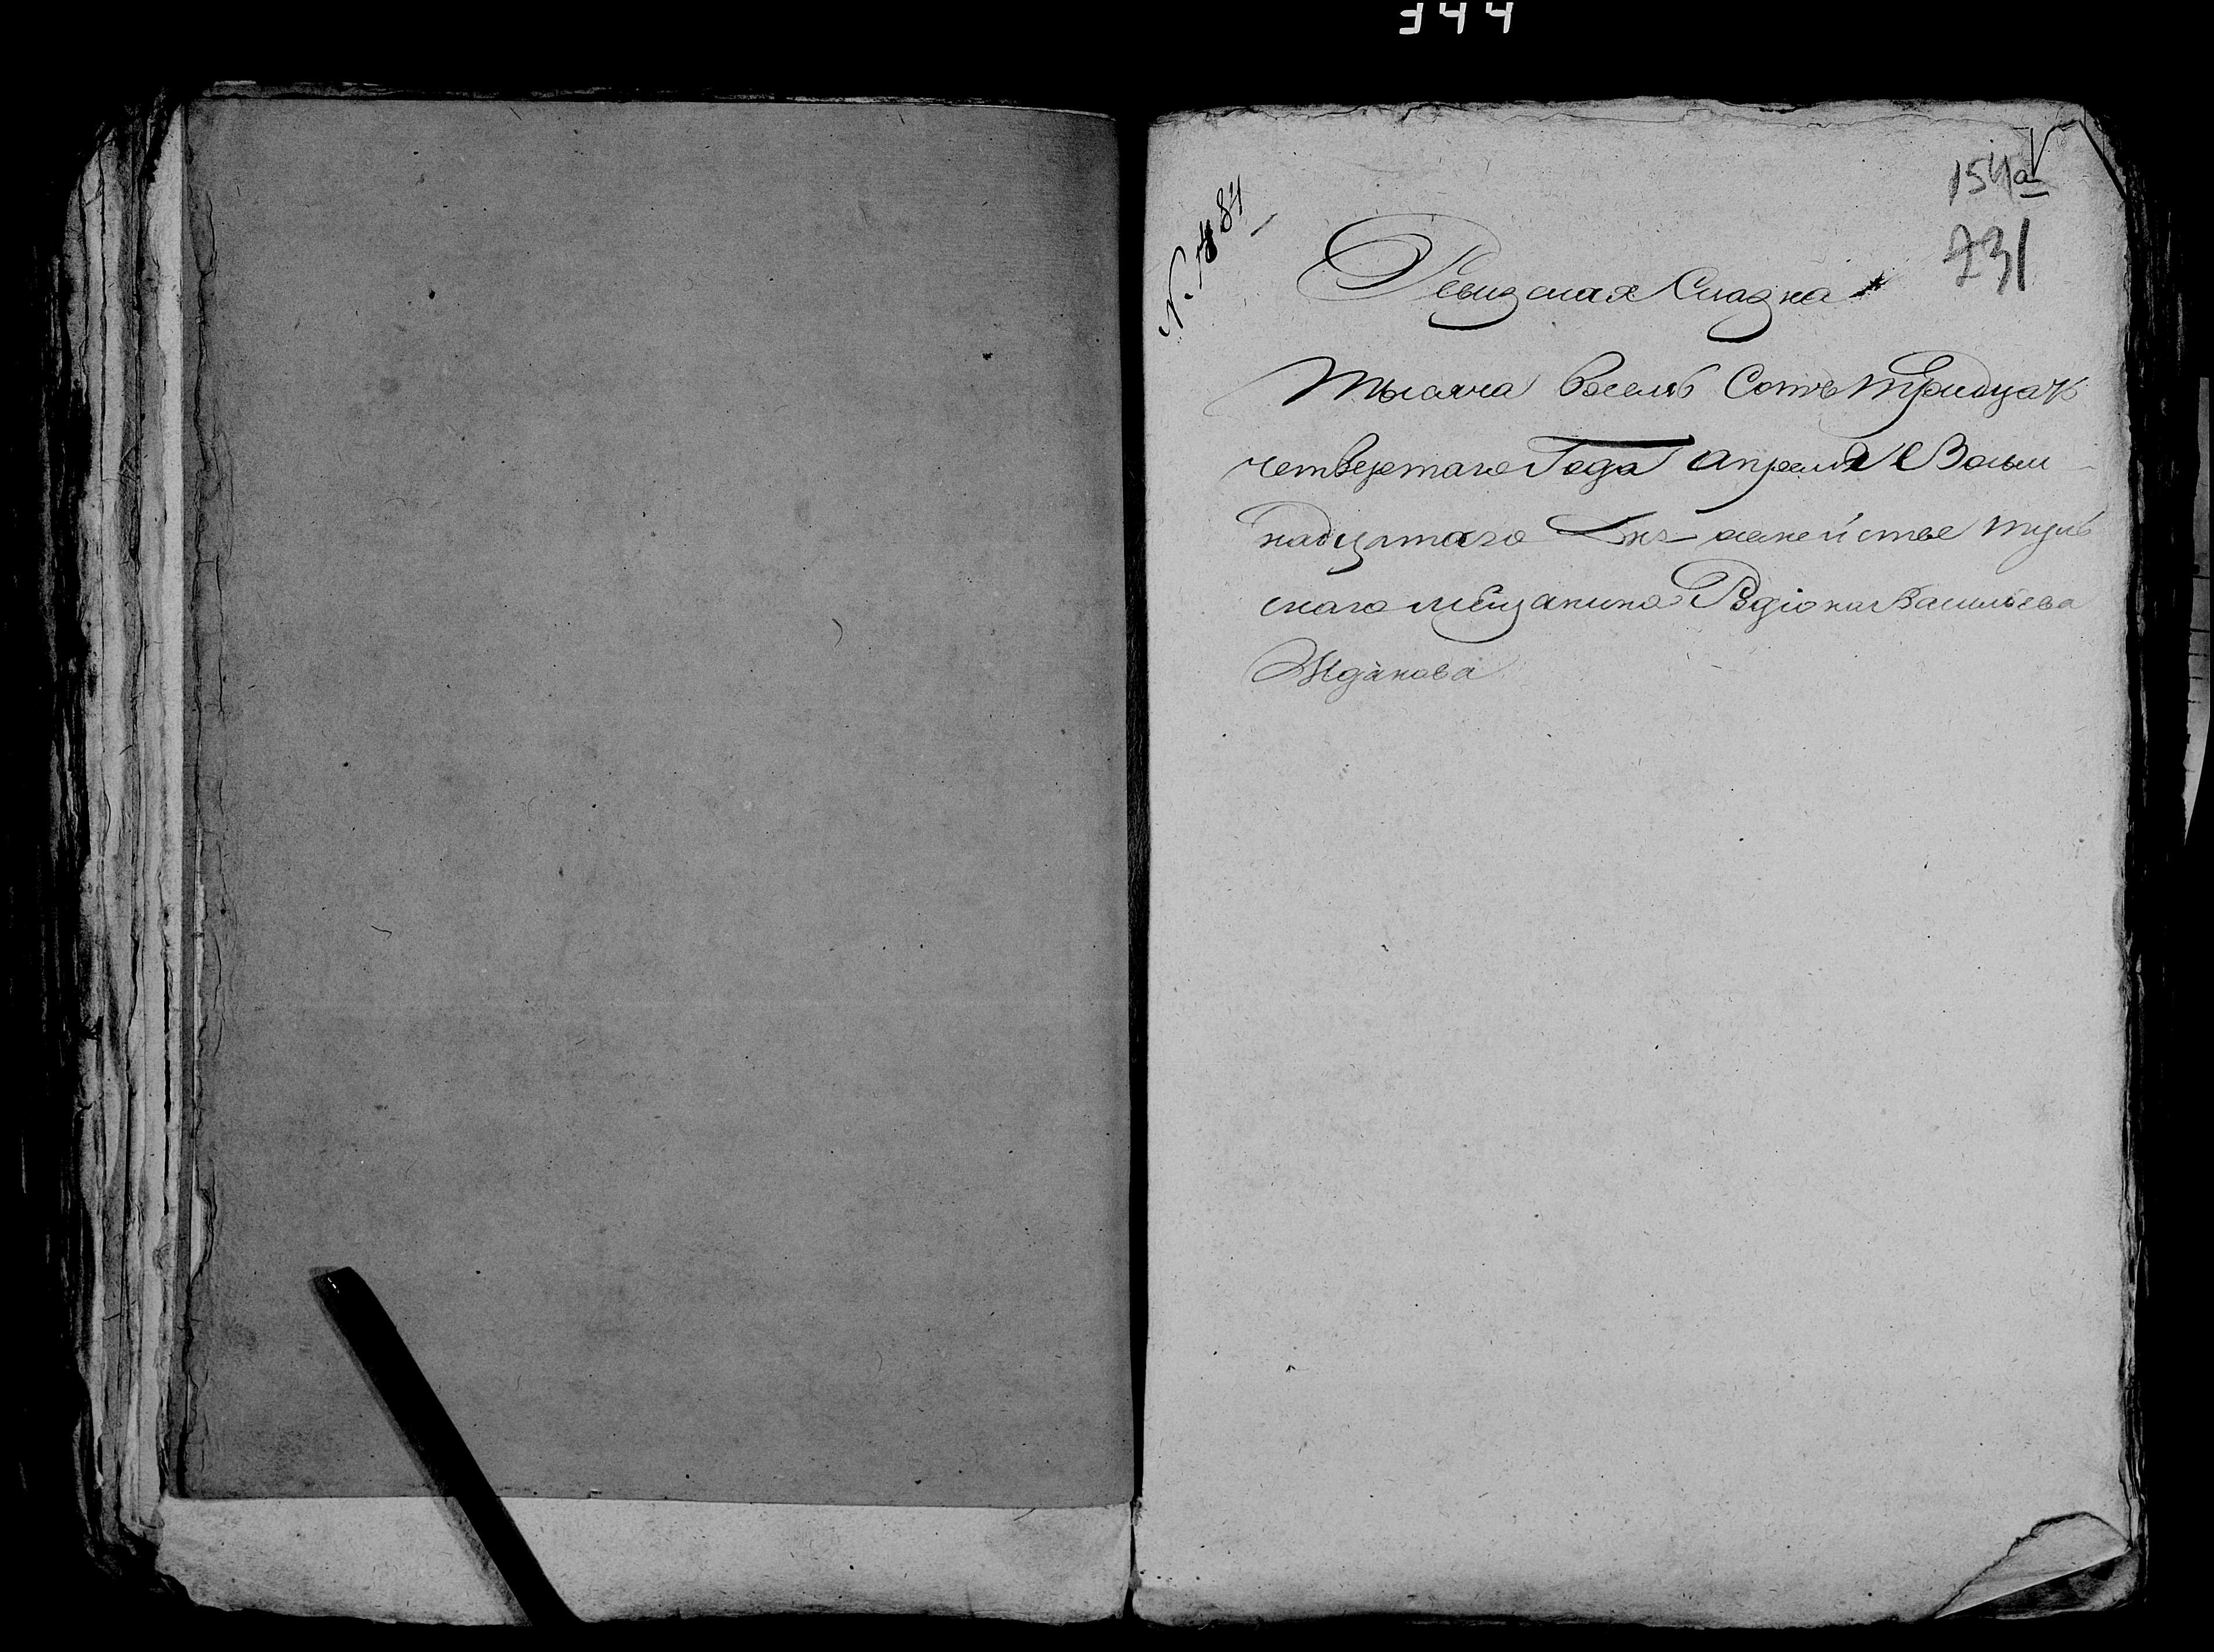 344
154а
731
Ревизская Сказка
тысяча восемь Сотъ тритцать
четвертаго Года апреля Восем
надцатаго Дня осемействе туль
скаго мещанина Радіона Васильева
Жданова